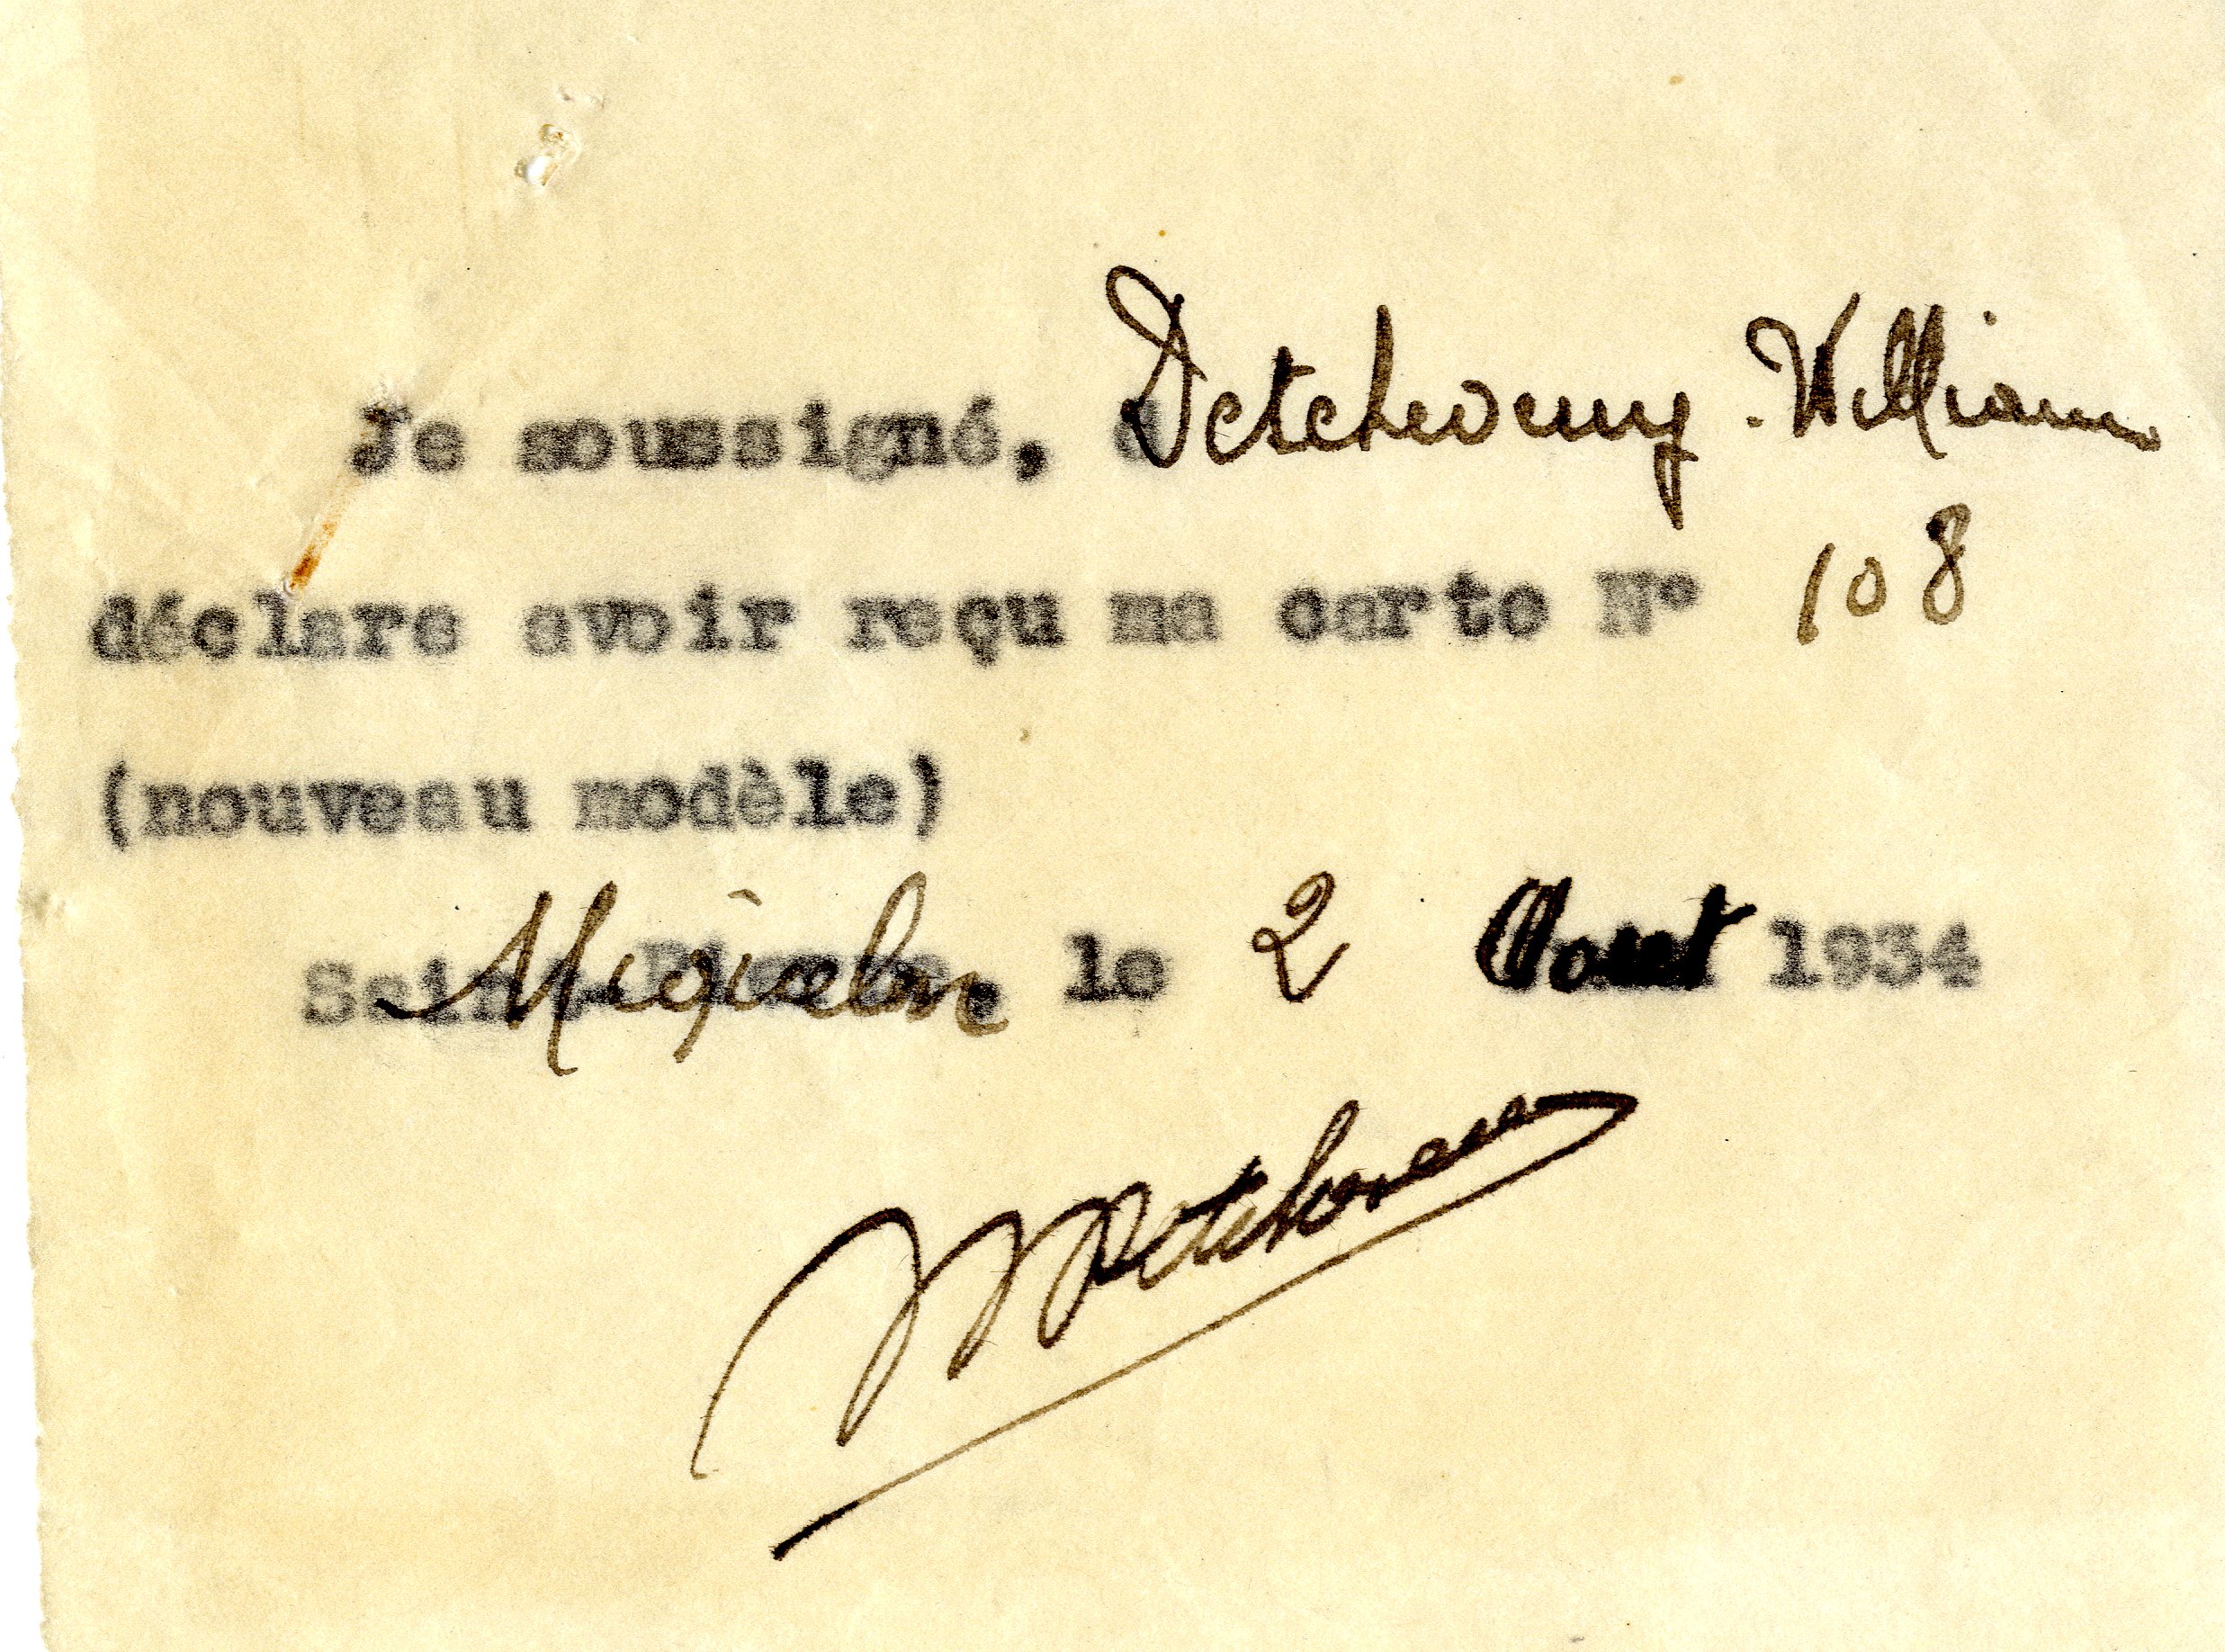 Je soussigné, Detcheverry William
déclare avoir reçu ma carte N° 108
(nouveau modèle)
Miquelon le 2 Aout 1934
WDetcheverry